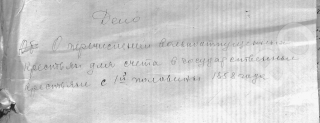 Дело
О перечислении вольноотпущенных
крестьян для счета в государственные
крестьяне с 1й половины 1858 года